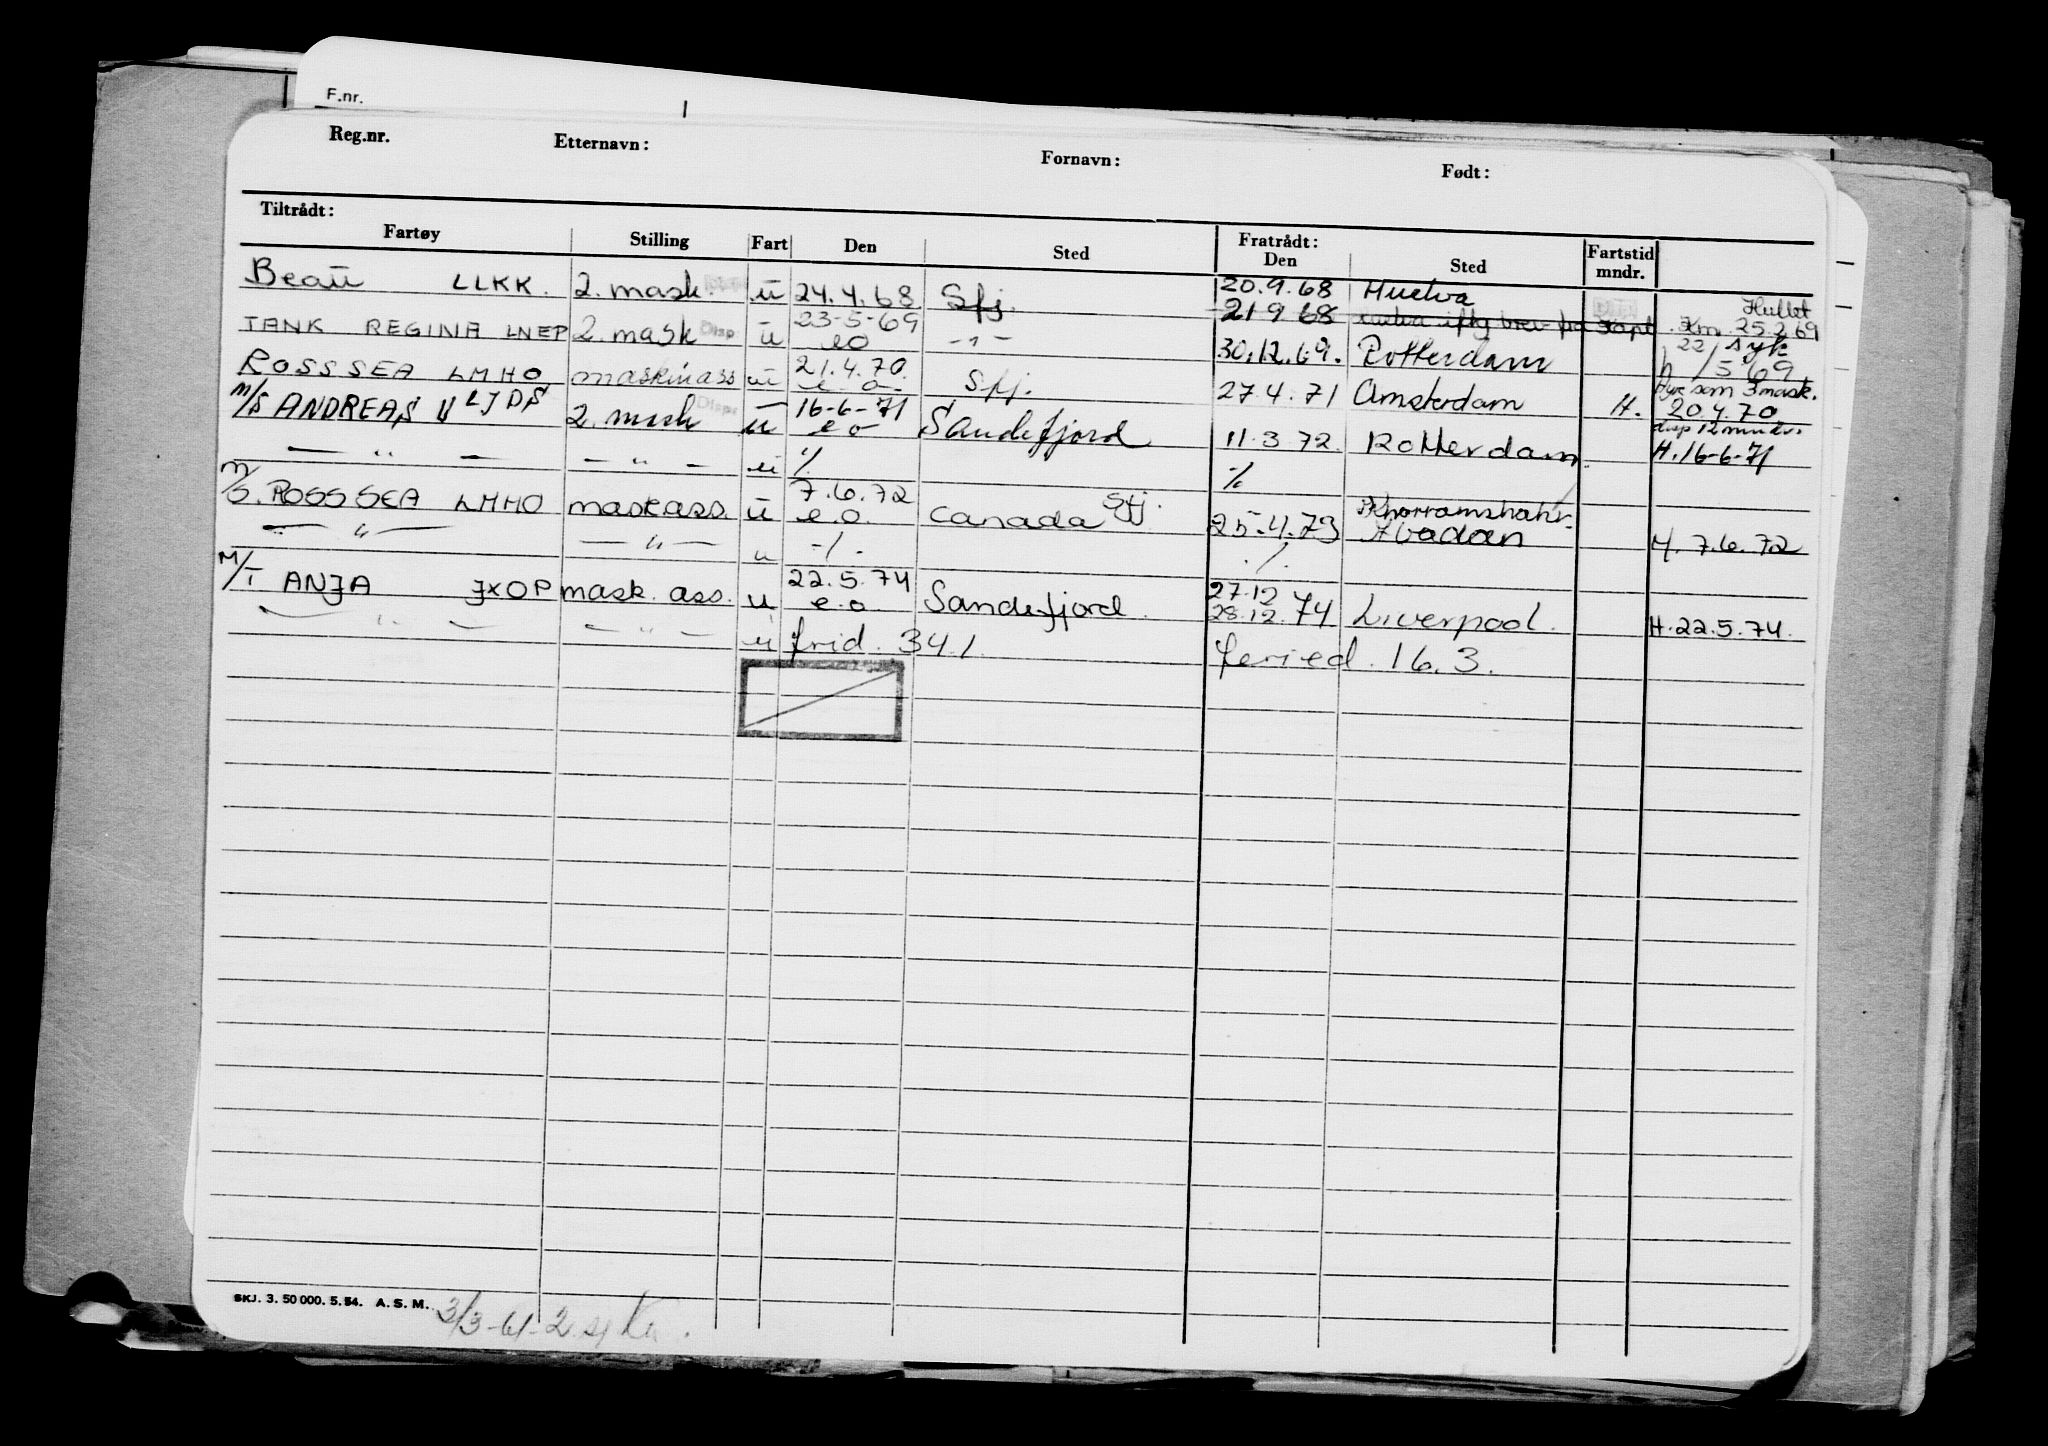 F.nr.
Reg.nr. Etternavn: Fornavn: Født:
Tiltrådt: Fratrådt:
Fartøy Stilling Fart Den Sted Den Sted Fartstid mndr.
Beau LLKK. 2. mask. u 24.4.68 Sfj. 20.9.68 Huelva Hullet
21 9 68 25.2.69
TANK REGINA LNEP 2. mask Disp u 23-5-69 eo -"- 30.12.69. Rotterdam 22/5 69 syk
ROSSSEA LMHO maskinass u 21.4.70. e o Sfj. 27.4.71 Amsterdam H. 20.4.70 som 3 mask.
M/S ANDREAS U LJDS 2. mask Disp u 16-6-71 eo Sandefjord 11.3.72. Rotterdam. H.16-6-71 disp 12 mndr.
— " — — " — u % %
M/S. ROSSSEA LMHO mask ass. u 7.6.72 e.o. Canada Sfj. 25.4.73 Khorramshahr Abadan H. 7.6.72
— " — — " — u -/- ./.
M/T ANJA JXOP mask. ass. u 22.5.74 e.o. Sandefjord. 27.12 28.12.74 Liverpool. H.22.5.74.
— " — — " — u frid. 341. feried. 16.3.
SKJ. 3. 50 000. 5. 54. A. S. M. 3/3-61-2